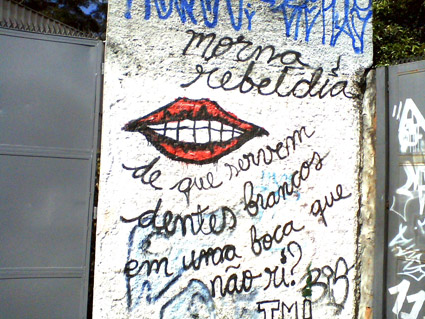 morna
rebeldia
de que servem
dentes brancos
em uma boca que
não ri?